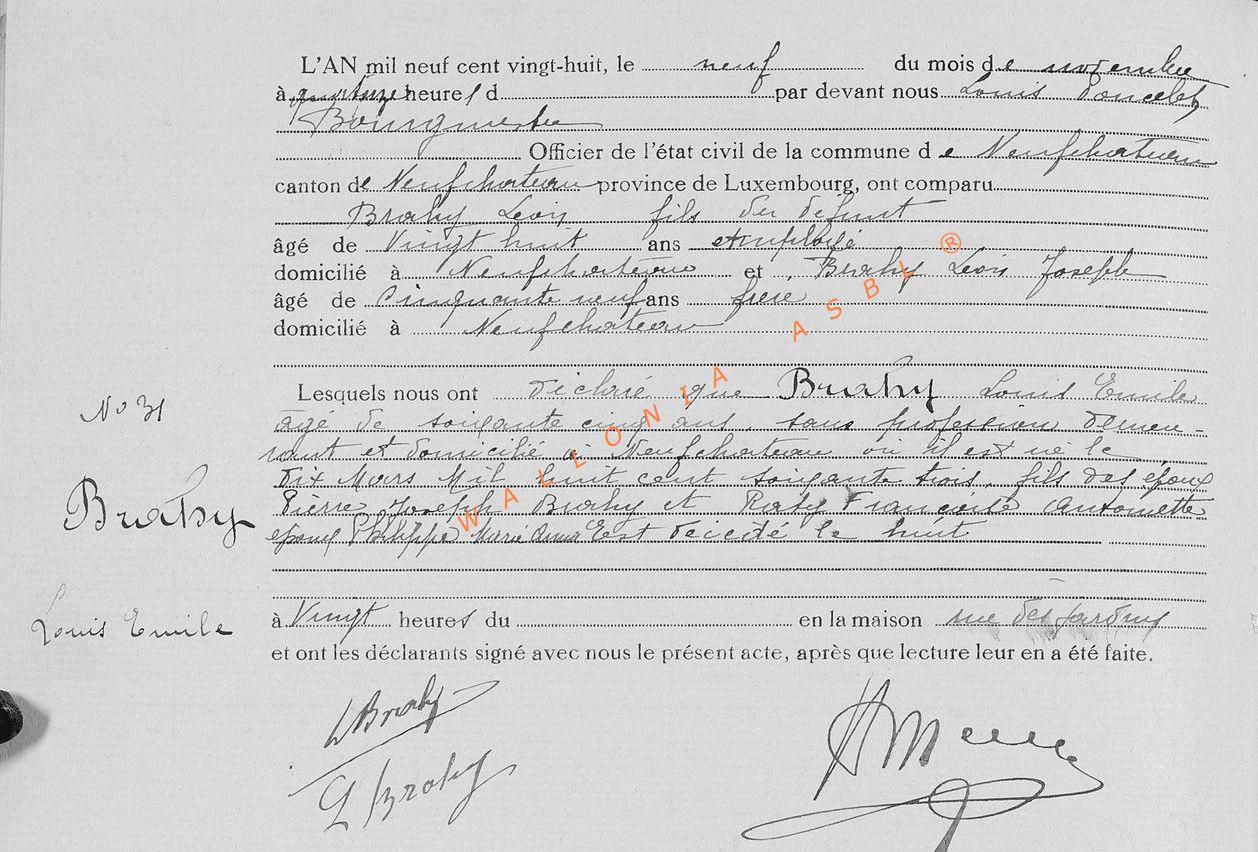 L'AN mil neuf cent vingt-huit, le neuf du mois de novembre
à quatorze heures d par devant nous Louis Poncelet,
Bourgmestre
Officier de l'état civil de la commune de Neufchateau
canton de Neufchateau province de Luxembourg, ont comparu
Brahy Léon fils du défunt
âgé de Vingt huit ans employé
domicilié à Neufchateau et Brahy Léon Joseph
âgé de Cinquante neuf ans frère
domicilié à Neufchateau
Lesquels nous ont déclaré que Brahy Louis Emile
âgé de soixante cinq ans, sans profession demeu-
rant et domicilié à Neufchateau où il est né le
dix Mars Mil huit cent soixante trois, fils des époux
Pierre Joseph Brahy et Françoise Antoinette
époux Philippe Marie Anna Est décédé le huit
à Vingt heures du en la maison rue des Jardins
et ont les déclarants signé avec nous le présent acte, après que lecture leur en a été faite.
No 31
Brahy
Louis Emile
LBrahy
L Brahy
WALLONIA ASBL ®